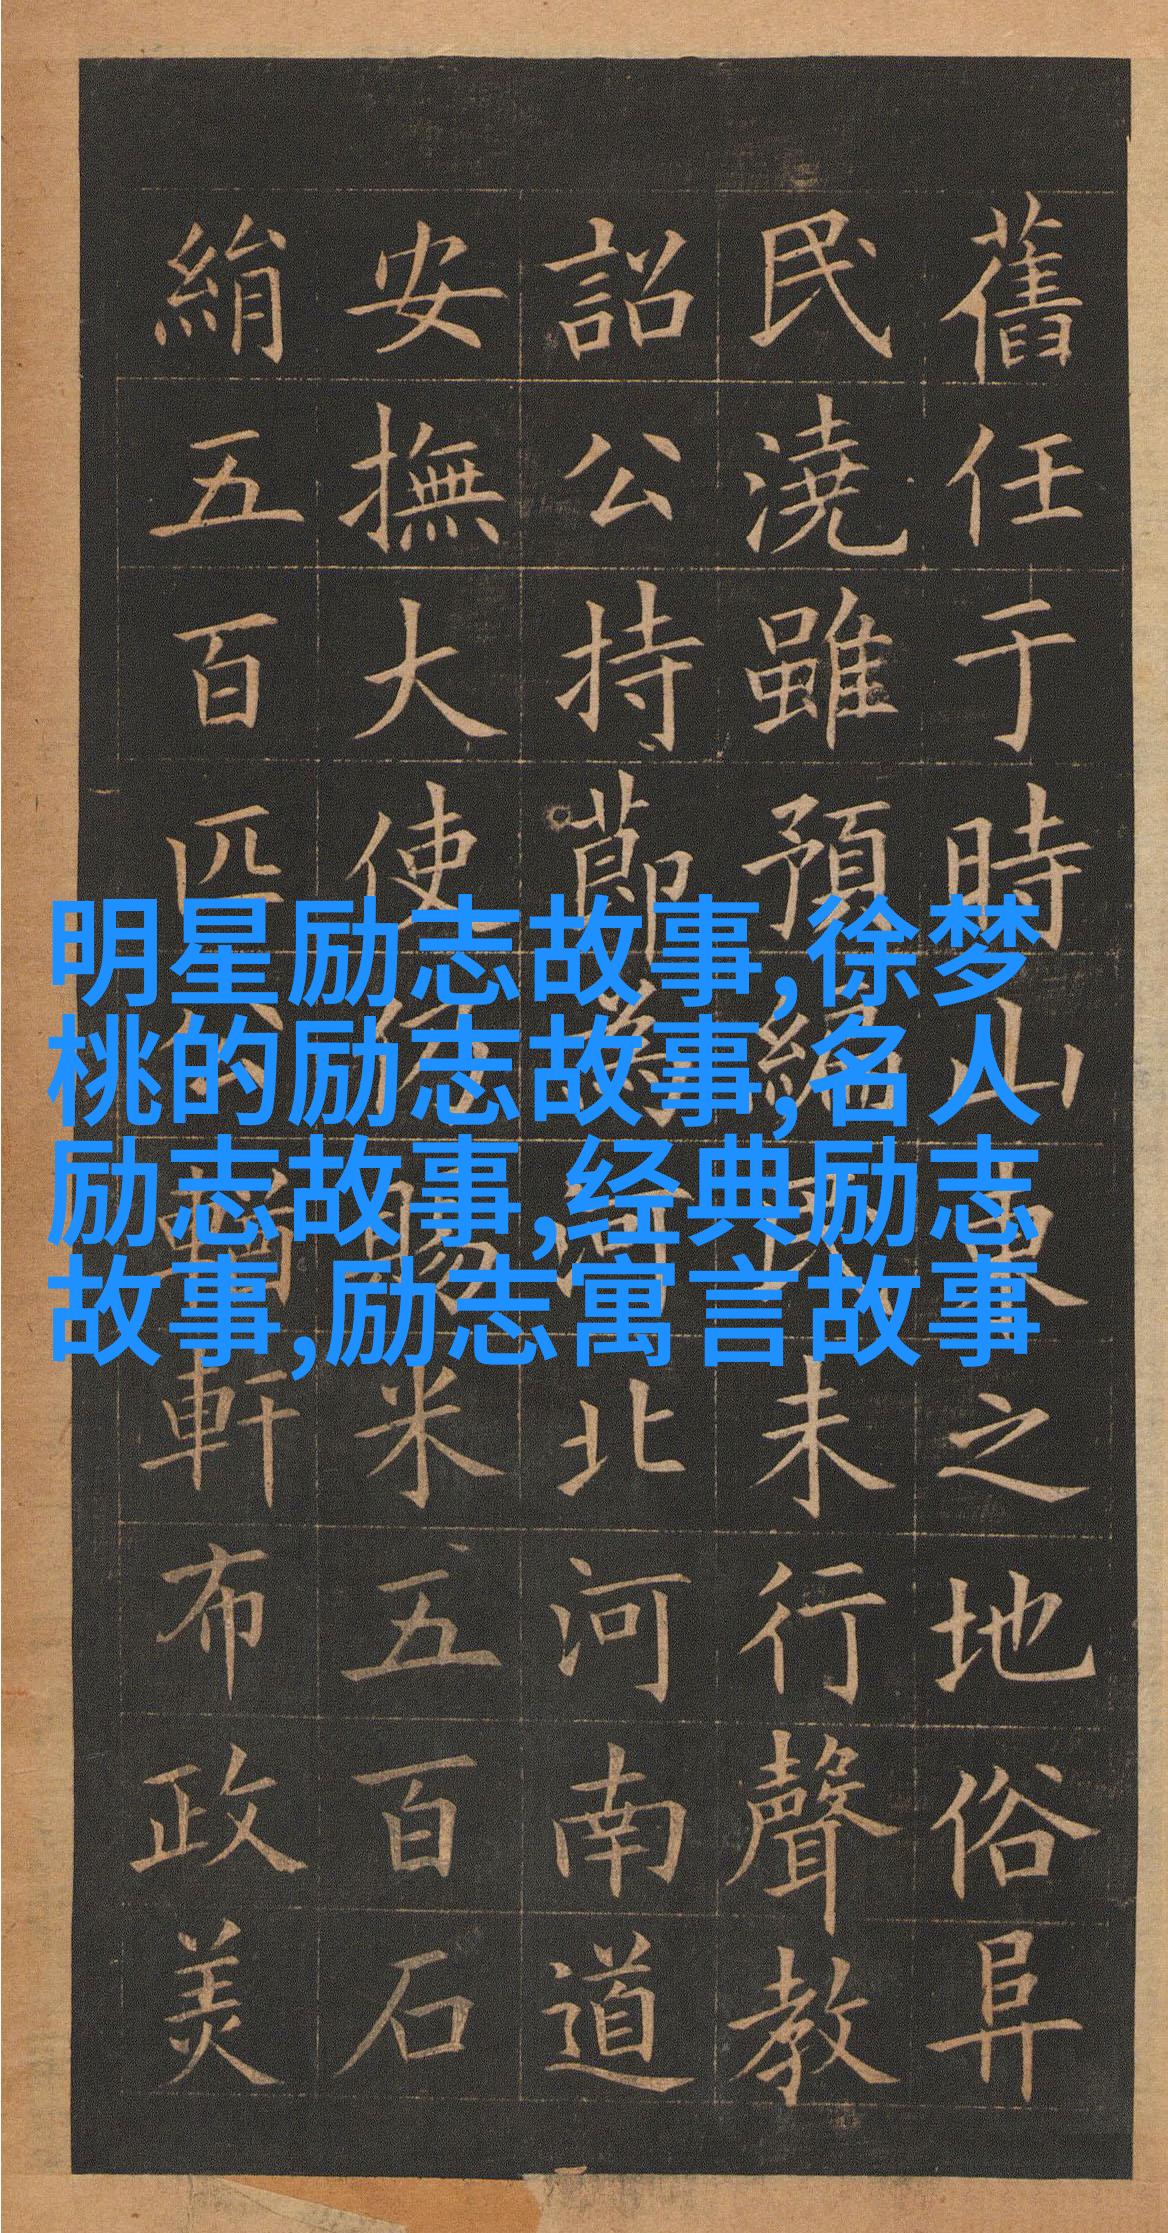 舊任于時山東之地俗阜
民澆雖預編民未行聲教
詔公持節為河北河南道
安撫大使仍賜米五百石
絹五百匹公輶軒布政美
明星励志故事,徐梦
桃的励志故事,名人
励志故事,经典励志
故事,励志寓言故事